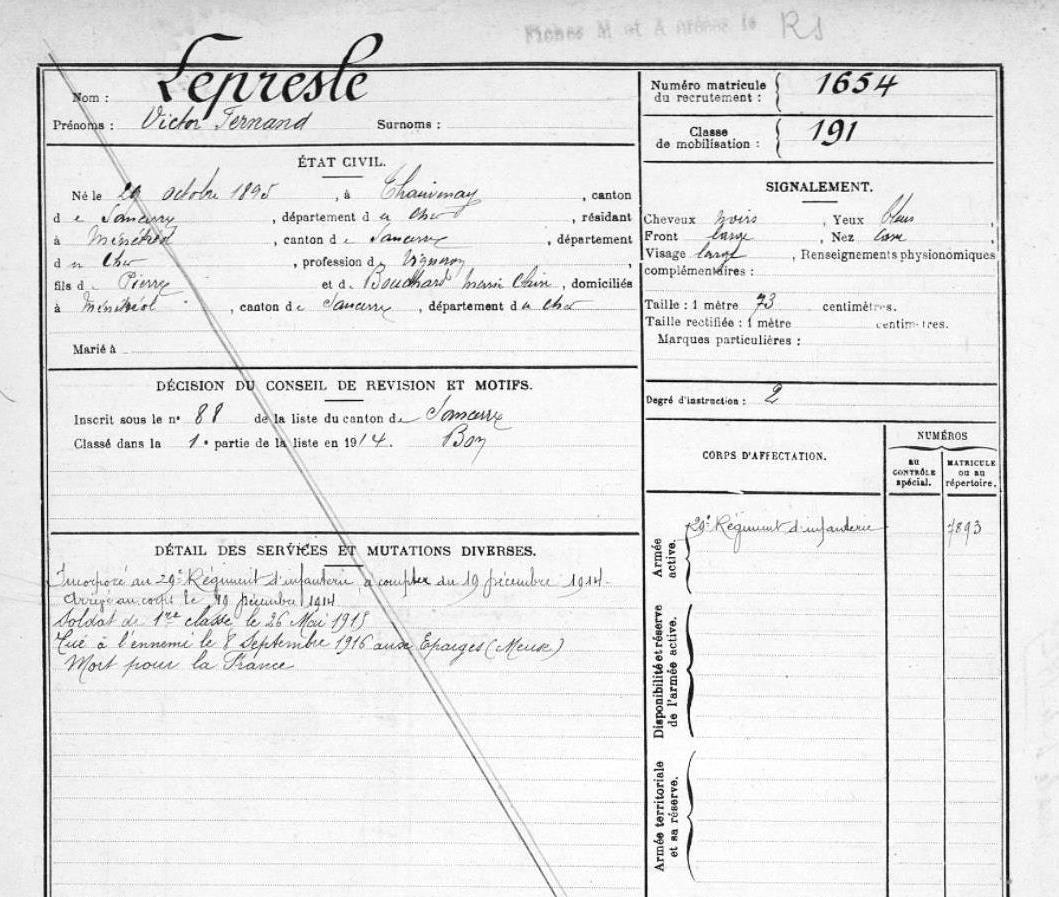 Fiches M et A RS
Nom : Lepresle
Prénoms : Victor Fernand Surnoms :
Numéro matricule du recrutement : 1654
Classe de mobilisation : 191
ÉTAT CIVIL.
Né le octobre 1895, à, canton
de Sancerre, département du Cher, résidant
à Ménétréol, canton de Sancerre, département
du Cher, profession de Vigneron
fils de Pierre et de Bouchard, domiciliés
à Ménétréol, canton de Sancerre, département du Cher
Marié à
SIGNALEMENT.
Cheveux noirs, Yeux bleus,
Front large, Nez,
Visage large, Renseignements physionomiques
complémentaires :
Taille : 1 mètre 73 centimètres.
Taille rectifiée : 1 mètre centimètres.
Marques particulières :
Degré d'instruction : 2
DÉCISION DU CONSEIL DE REVISION ET MOTIFS.
Inscrit sous le n° 88 de la liste du canton de Sancerre
Classé dans la 1e partie de la liste en 1914. Bon
CORPS D'AFFECTATION.
NUMÉROS
au CONTRÔLE spécial.
MATRICULE ou au répertoire.
Armée active.
29e Régiment d'infanterie 7893
Disponibilité et réserve de l'armée active.
Armée territoriale et sa réserve.
DÉTAIL DES SERVICES ET MUTATIONS DIVERSES.
Incorporé au 29e Régiment d'infanterie à compter du 19 décembre 1914.
Arrivé au corps le 19 décembre 1914
Soldat de 1re classe le 26 Mai 1915
Tué à l'ennemi le 8 Septembre 1916 aux Eparges (Meuse)
Mort pour la France